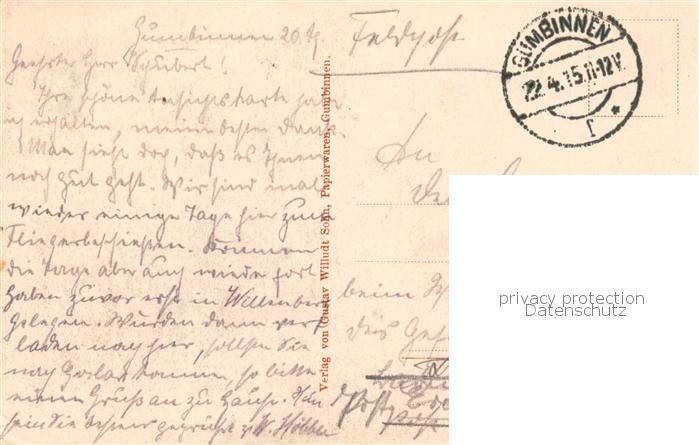 Gumbinnen 20./4.
Feldpost
Geehrter Herr Schubert!
Ihre schöne Ansichtskarte habe
ich erhalten, meinen besten Dank.
Man sieht doch, daß es Ihnen
noch gut geht. Wir sind mal
wieder einige Tage hier zum
Fliegerbeschießen. Können
die Tage aber auch wieder fort
haben zuvor erst in Willenberg
gelegen. Wurden dann ver-
laden nach hier, sollten Sie
nach Goslar kommen, so bitte
einen Gruß an zu Hause.
seien Sie bestens gegrüßt v. W.
GUMBINNEN
22.4.15.11-12V.
f *
An
beim
des
Post
Verlag von Gustav Willudt Sohn, Papierwaren, Gumbinnen.
privacy protection
Datenschutz